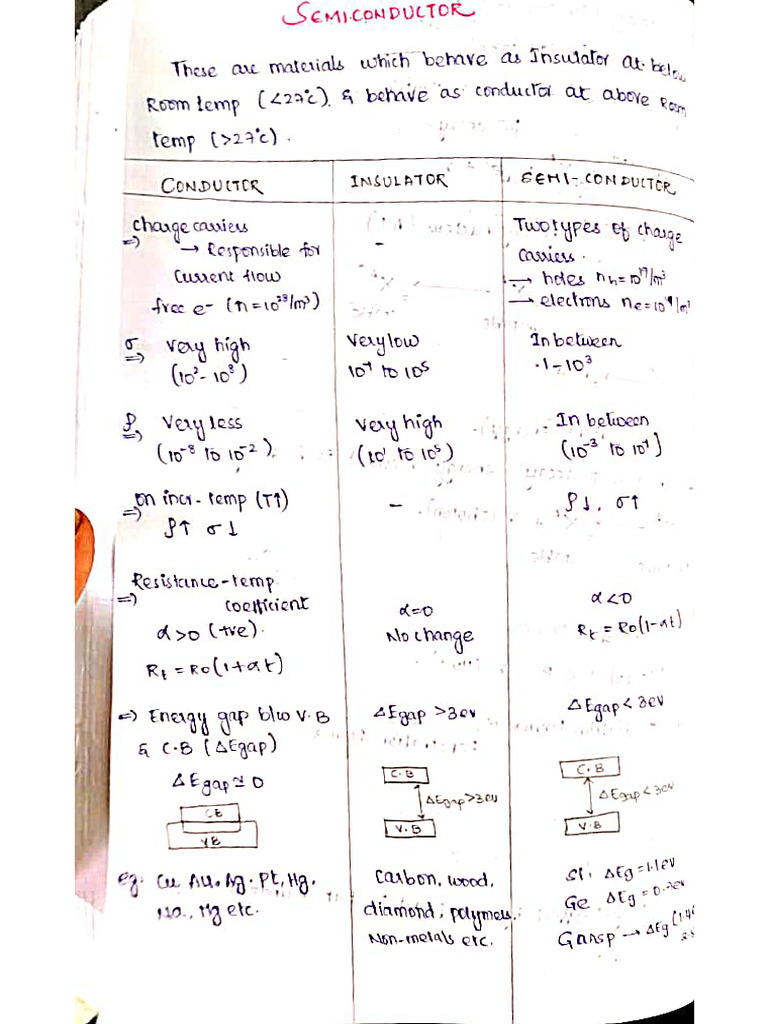 SEMICONDUCTOR
These are materials which behave as Insulator at below
Room temp (<27°c) & behave as conductor at above Room
temp (>27°c).
CONDUCTOR
INSULATOR
SEMI-CONDUCTOR
Charge carriers
⇒ → Responsible for
Current flow
free e- (n=10²³/m³)
-
Two types of charge
carriers.
→ holes nh=10¹⁹/m³
→ electrons ne=10¹⁹/m³
σ ⇒ Very high
(10²-10³)
Very low
to 10⁵
In between
.1-10³
ρ ⇒ Very less
(10⁻⁸ to 10⁻²)
Very high
(10¹ to 10⁵)
In between
(10⁻³ to 10¹)
⇒ On incr-temp (T↑)
ρ↑ σ↓
-
ρ↓, σ↑
⇒ Resistance-temp
coefficient
α>0 (+ve).
Rt = Ro(1+αt)
α=0
No change
α<0
Rt = Ro(1-αt)
⇒ Energy gap b/w V.B
& C.B (ΔEgap)
ΔEgap ≃ 0
CB
VB
ΔEgap >3ev
C.B
ΔEgap>3ev
V.B
ΔEgap < 3ev
C.B
ΔEgap<3ev
V.B
eg. Cu, Au, Ag, Pt, Hg,
Mg etc.
Carbon, wood,
diamond, polymers,
Non-metals etc.
Si, ΔEg =1.1ev
Ge ΔEg =
Gaasp → ΔEg